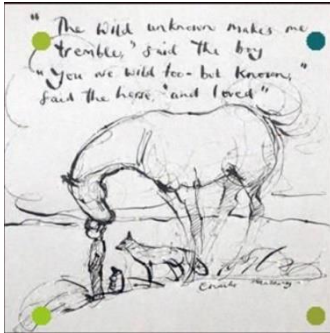 "The wild unknown makes me
tremble," said the boy
"You are wild too - but known,"
said the horse, "and loved"